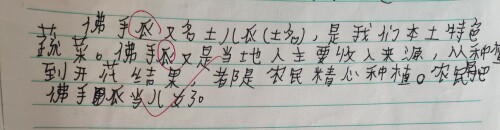 佛手瓜又名土儿瓜(土名),是我们本土特色
蔬菜。佛手瓜又是当地人主要收入来源,从种植
到开花结果,都是农民精心种植。农民把
佛手瓜当儿女